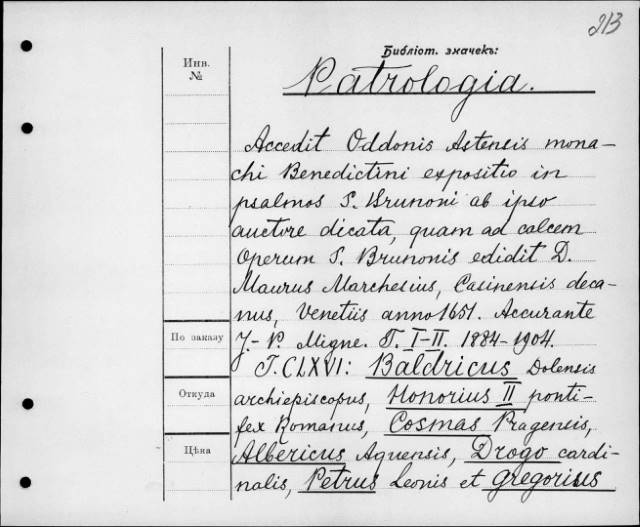 213
Библіот. значекъ:
Инв.
№
Patrologia.
Accedit Oddonis Astensis mona-
chi Benedictini expositio in
psalmos S. Brunoni ab ipso
auctore dicata, quam ad calcem
Operum S. Brunonis edidit D.
Maurus Marchesius, Casinensis deca-
nus, Venetiis anno 1651. Accurante
По заказу
J.-P. Migne. T. I-II. 1884-1904.
T. CLXVI: Baldricus Dolensis
Откуда
archiepiscopus, Honorius II ponti-
fex Romanus, Cosmas Pragensis,
Цѣна
Albericus Aquensis, Drogo cardi-
nalis, Petrus Leonis et Gregorius